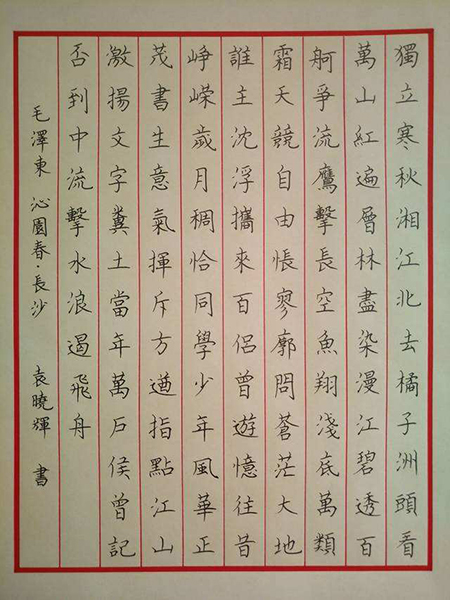 獨立寒秋湘江北去橘子洲頭看
萬山紅遍層林盡染漫江碧透百
舸爭流鷹擊長空魚翔淺底萬類
霜天競自由悵寥廓問蒼茫大地
誰主沈浮攜來百侶曾遊憶往昔
崢嶸歲月稠恰同學少年風華正
茂書生意氣揮斥方遒指點江山
激揚文字糞土當年萬戶侯曾記
否到中流擊水浪遏飛舟
毛澤東 沁園春·長沙 袁曉輝 書